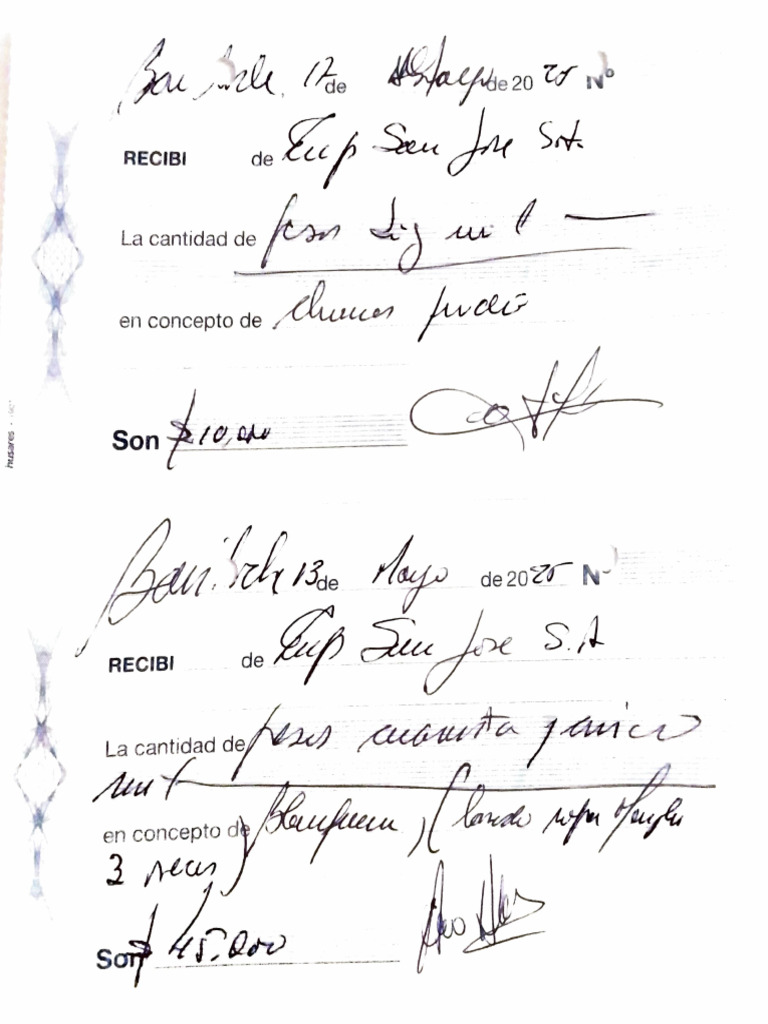 Bariloche, 12 de Mayo de 2025 Nº
RECIBI de Emp San Jose S.A.
La cantidad de pesos diez mil
en concepto de
Son $ 10,000
Bariloche 13 de Mayo de 2025 Nº
RECIBI de Emp San Jose S.A
La cantidad de pesos cuarenta y cinco
mil
en concepto de (lavado ropa
3 veces)
Son $ 45.000
husares